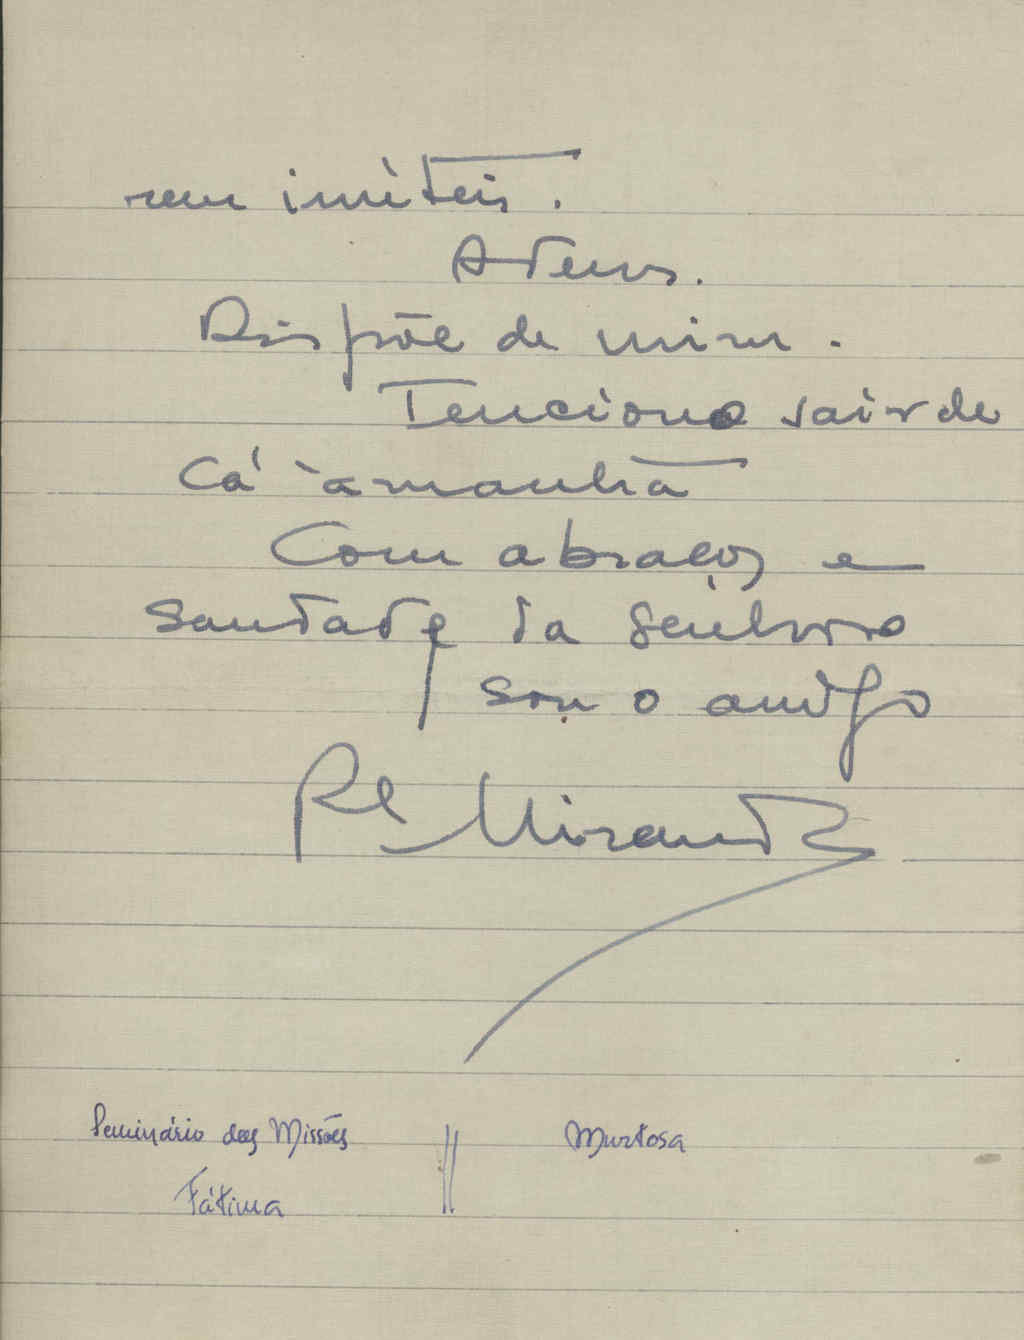 rem inúteis.
Adeus.
Dispõe de mim.
Tenciono sair de
cá àmanhã
Com abraços e
saudade da Senhora
sou o amigo
Pe Miranda
Seminário das Missões // Murtosa
Fátima